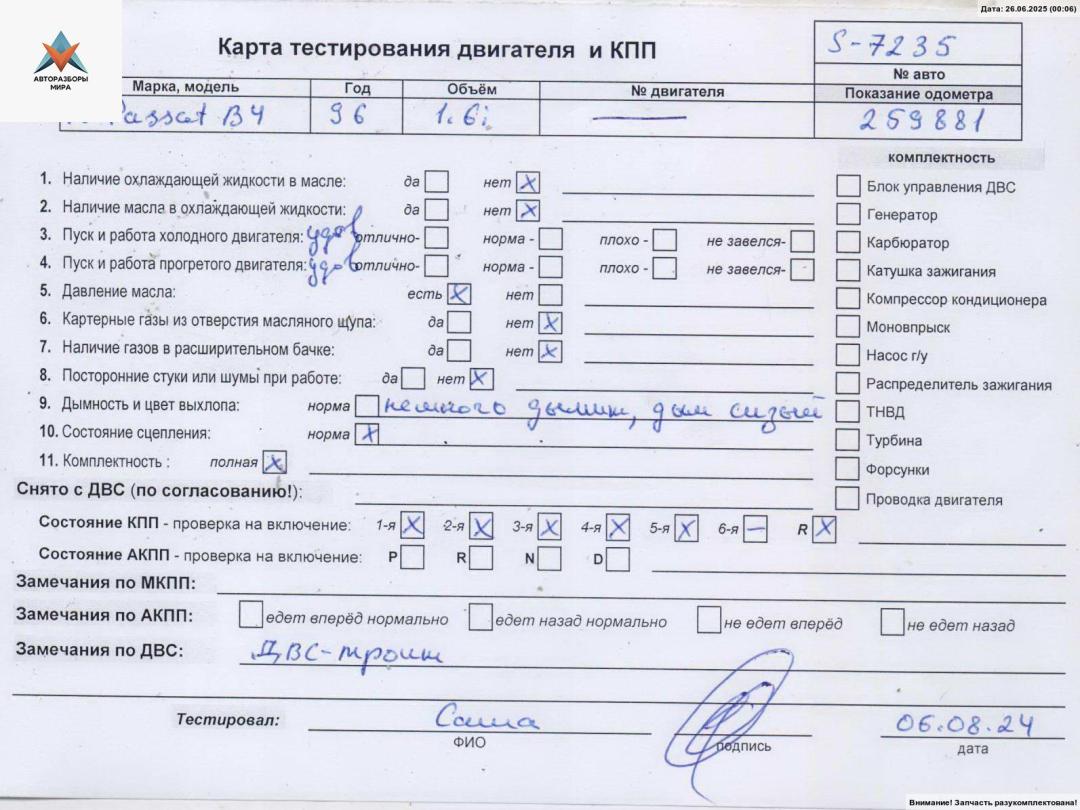 Дата: 26.06.2025 (00:06)
АВТОРАЗБОРЫ
МИРА
Карта тестирования двигателя и КПП
S-7235
№ авто
Марка, модель Год Объём № двигателя Показание одометра
Passat B4 96 1.6i — 259881
комплектность
1. Наличие охлаждающей жидкости в масле: да нет X
2. Наличие масла в охлаждающей жидкости: да нет X
3. Пуск и работа холодного двигателя: удов отлично- норма - плохо - не завелся-
4. Пуск и работа прогретого двигателя: удов отлично- норма - плохо - не завелся-
5. Давление масла: есть X нет
6. Картерные газы из отверстия масляного щупа: да нет X
7. Наличие газов в расширительном бачке: да нет X
8. Посторонние стуки или шумы при работе: да нет X
9. Дымность и цвет выхлопа: норма немного дымит, дым сизый
10. Состояние сцепления: норма X
11. Комплектность : полная X
Блок управления ДВС
Генератор
Карбюратор
Катушка зажигания
Компрессор кондиционера
Моновпрыск
Насос г/у
Распределитель зажигания
ТНВД
Турбина
Форсунки
Проводка двигателя
Снято с ДВС (по согласованию!):
Состояние КПП - проверка на включение: 1-я X 2-я X 3-я X 4-я X 5-я X 6-я — R X
Состояние АКПП - проверка на включение: P R N D
Замечания по МКПП:
Замечания по АКПП: едет вперёд нормально едет назад нормально не едет вперёд не едет назад
Замечания по ДВС: ДВС-троит
Тестировал: Саша 06.08.24
ФИО подпись дата
Внимание! Запчасть разукомплектована!